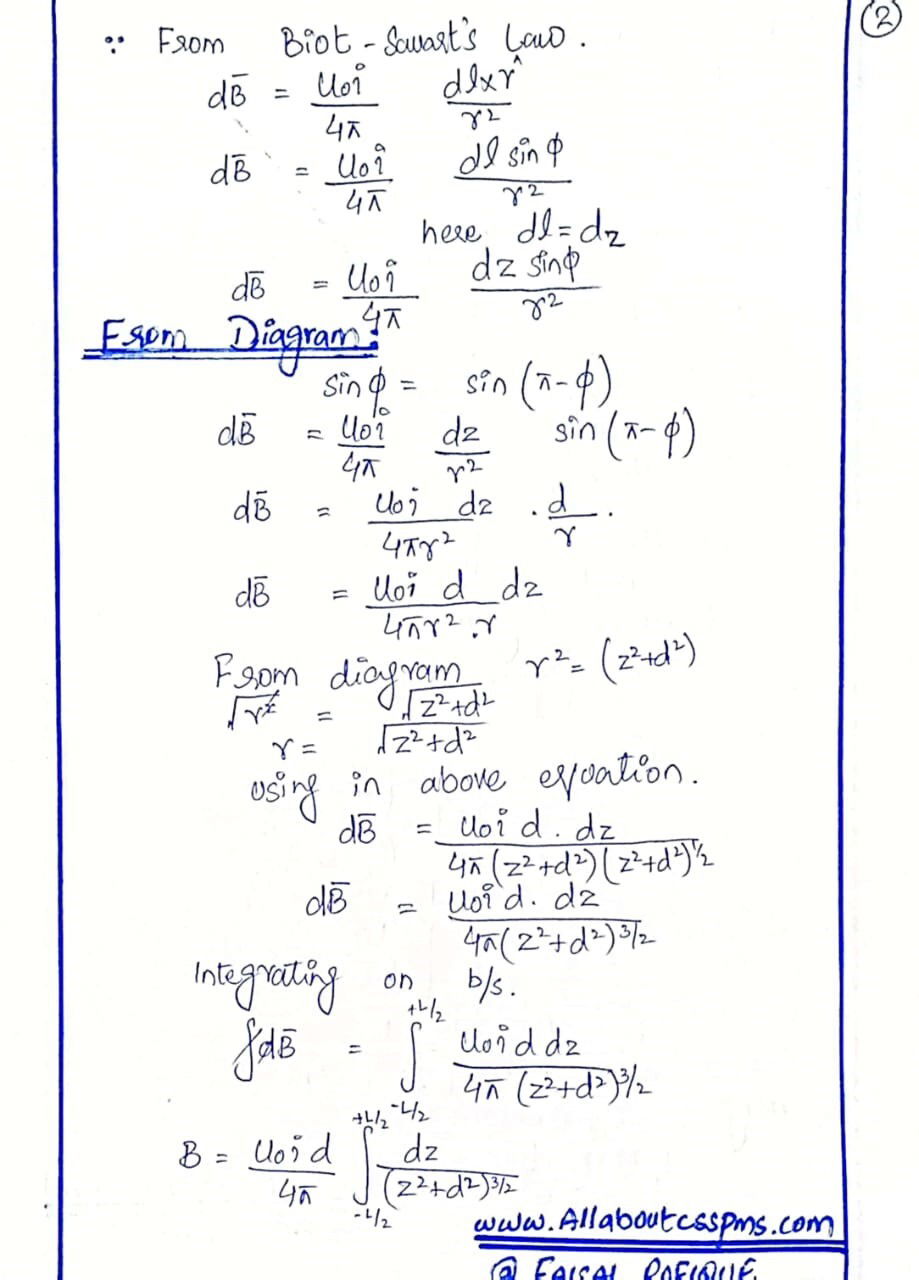 ②
∵ From Biot-Savart's Law.
dB̄ = μ₀i/4π dl×r̂/r²
dB̄ = μ₀i/4π dl sin φ/r²
here dl = dz
dB̄ = μ₀i/4π dz sinφ/r²
From Diagram:
sin φ = sin (π-φ)
dB̄ = μ₀i/4π dz/r² sin (π-φ)
dB̄ = μ₀i dz/4πr² . d/r .
dB̄ = μ₀i d dz/4πr².r
From diagram r² = (z²+d²)
√r² = √z²+d²
r = √z²+d²
using in above equation.
dB̄ = μ₀i d . dz/4π(z²+d²)(z²+d²)^1/2
dB̄ = μ₀i d. dz/4π(z²+d²)^3/2
Integrating on b/s.
∫dB̄ = ∫_-L/2^+L/2 μ₀i d dz/4π (z²+d²)^3/2
B = μ₀i d/4π ∫_-L/2^+L/2 dz/(z²+d²)^3/2
www.Allaboutcsspms.com
@ FAISAL RAFIQUE